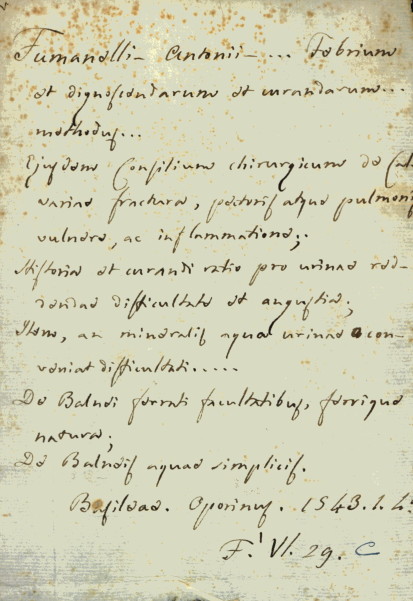 Fumanelli - Antonii - ... Febrium
et dignoscendarum et curandarum...
methodus...
Ejusdem Consilium chirurgicum de Cal-
variae fractura, pectoris atque pulmonis
vulnere, ac inflammatione;.
Historia et curandi ratio pro urinae red-
dendae difficultate et angustia;
Item, an mineralis aqua urinae con-
veniat difficultati.....
De Balnei ferrati facultatibus, ferrique
natura;
De Balneis aquae simplicis.
Basileae. Oporinus. 1543. 1. 4º
F.' VI. 29. C